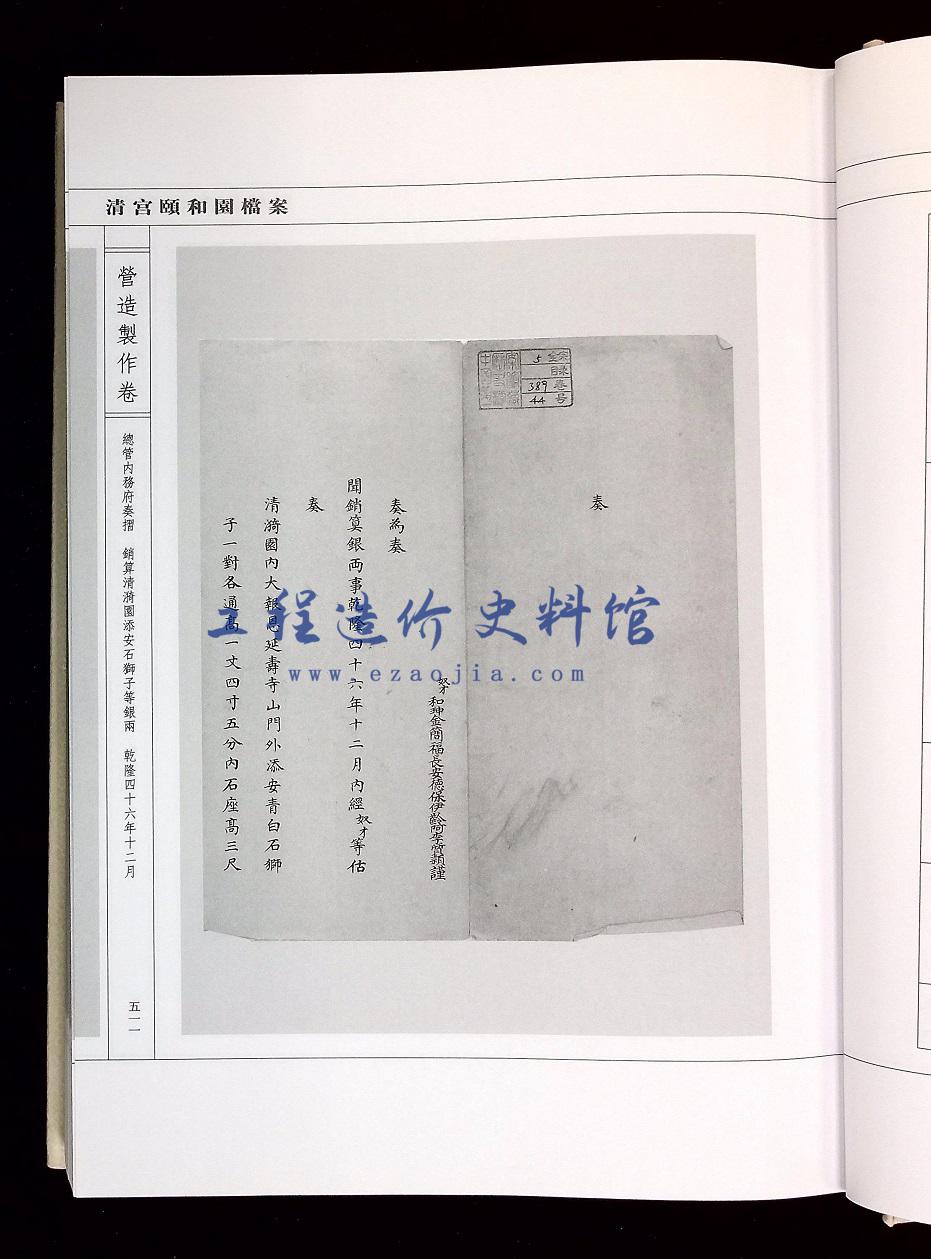 清宮頤和園檔案
營造製作卷
總管內務府奏摺 銷算清漪園添安石獅子等銀兩 乾隆四十六年十二月
五一一
全宗 5
目录
389 卷
44 号
奏
奴才和珅金簡福長安德保伊齡阿李質穎謹
奏為奏
聞銷算銀両事乾隆四十六年十二月內經奴才等估
奏
清漪園內大報恩延壽寺山門外添安青白石獅
子一對各通高一丈四寸五分內石座高三尺
工程造价史料馆
www.ezaojia.com